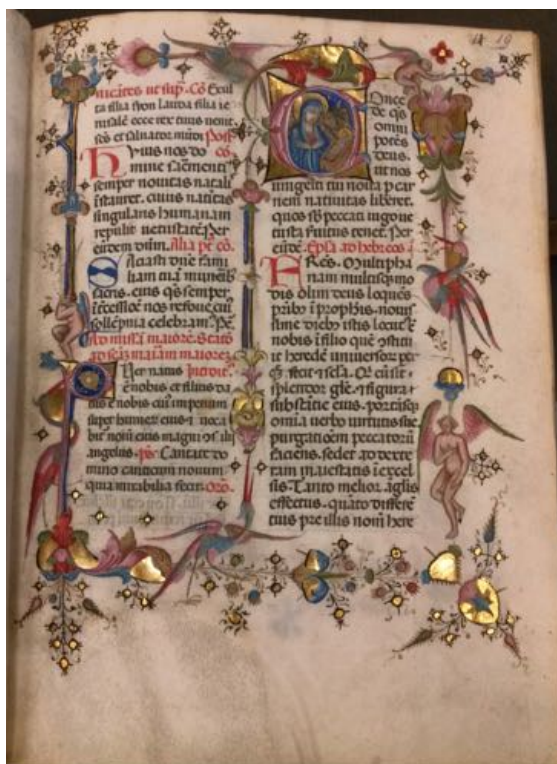 ut sup̄. Cō Exul
ta filia syon Lauda filia ie
rusalē ecce rex tuus uenit
sc̄s et saluator mūdi Post
Huius nos do cō
mine sac̄menti
semper nouitas natali
instauret. cuius natiuitas
singularis humanam
repulit uetustatē Per
eūdem dn̄m. Alia pꝰ cō.
Saciasti dn̄e fami
liam tuā munerib
sacris. eius q̄s semper
īt̄cessiōe nos refoue cuiꝰ
sollēpnia celebram
Ad missā maiorē. Statō
ad scām mariam maiorez
Puer natus Introit
ē nobis et filius da
tus ē nobis cuiꝰ imperium
super humerū eius et uoca
bit̄ nom̄ eius magni ↄsilii
angelus. p̄s Cantate do
mino canticum nouum
quia mirabilia fecit. Orō.
19
Conce
de q̄s
omīi
potēs
deus.
ut nos
unigeniti tui noua p car
nem natiuitas liberet.
quos sb̄ peccati iugo ue
tusta seruitus tenet. Per
eūdē. Epl̄a ad hebreos
Frēs. Multipha
riam multisqȝ mo
dis olim deus loquēs
prībꝰ ī prophetis. nouis
sime diebꝰ istis locutꝰ ē
nobis ī filio quē ↄstitu
it heredē uniuersorꝝ per
quē fecit et sc̄la. Qi cū sit
splendor glē. et figura
substātie eius. portāsqȝ
omīa uerbo uirtutis sue
purgatiōem peccatorū
faciens. sedet ad dexte
ram maiestatis ī excel
sis. Tanto melior āglis
effectus. quāto differē
tius pre illis nom̄ here